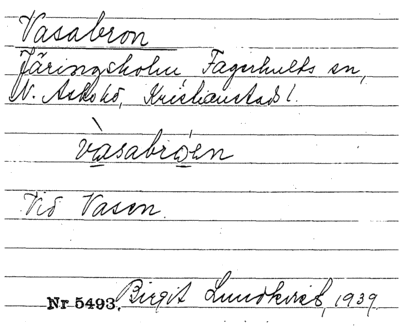 Vasabron
Järingsholm, Fagerhults sn,
N. Åsbo hd, Kristianstads l.
vàsabrọ́en
Vid Vasen.
Nr 5493. Birgit Lundkvist, 1939